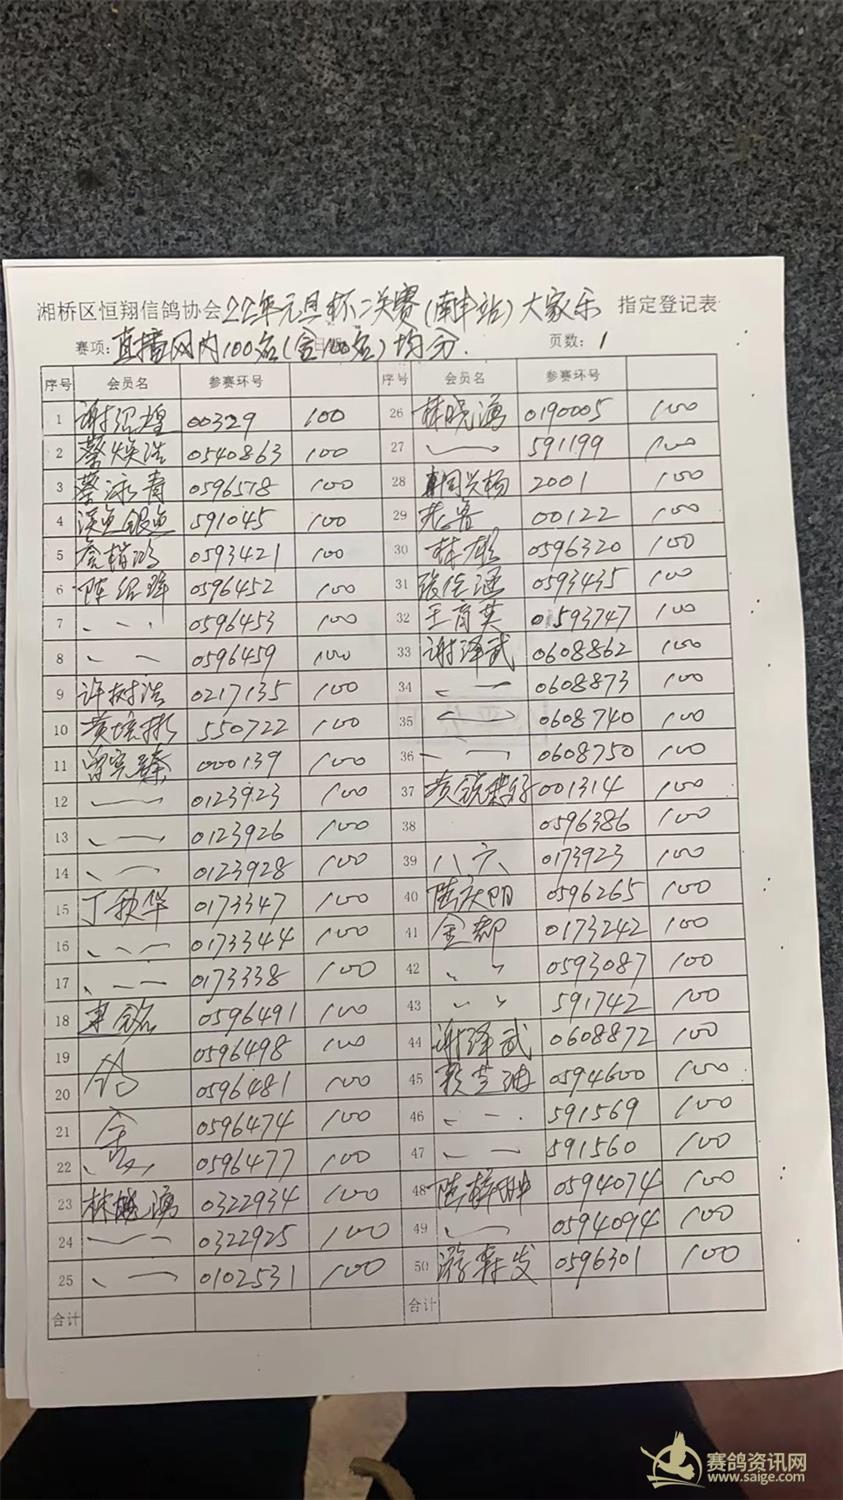 湘桥区恒翔信鸽协会22年元旦杯二关赛(南丰站)大家乐 指定登记表
赛项:直播网内100名(含100名)均分. 页数:1
序号 会员名 参赛环号 序号 会员名 参赛环号
1 谢绍煌 00329 100 26 林晓涌 0190005 100
2 蔡焕浩 0540863 100 27 〃 591199 100
3 蔡泳青 0596578 100 28 2001 100
4 溪鱼银鱼 591045 100 29 00122 100
5 0593421 100 30 林彪 0596320 100
6 陈绍辉 0596452 100 31 0593435 100
7 〃 0596453 100 32 王育英 0593747 100
8 〃 0596459 100 33 谢泽武 0608862 100
9 许树浩 0217135 100 34 〃 0608873 100
10 550722 100 35 〃 0608740 100
11 000139 100 36 〃 0608750 100
12 〃 0123923 100 37 001314 100
13 〃 0123926 100 38 0596386 100
14 〃 0123928 100 39 八六 0173923 100
15 丁秋华 0173347 100 40 陆庆阳 0596265 100
16 〃 0173344 100 41 金都 0173242 100
17 〃 0173338 100 42 〃 0593087 100
18 0596491 100 43 〃 591742 100
19 0596498 100 44 谢泽武 0608872 100
20 鸽 0596481 100 45 0594600 100
21 舍 0596474 100 46 〃 591569 100
22 〃 0596477 100 47 〃 591560 100
23 林晓涌 0322934 100 48 0594074 100
24 〃 0322925 100 49 〃 0594094 100
25 〃 0102531 100 50 游森发 0596301 100
合计 合计
赛鸽资讯网
www.saige.com